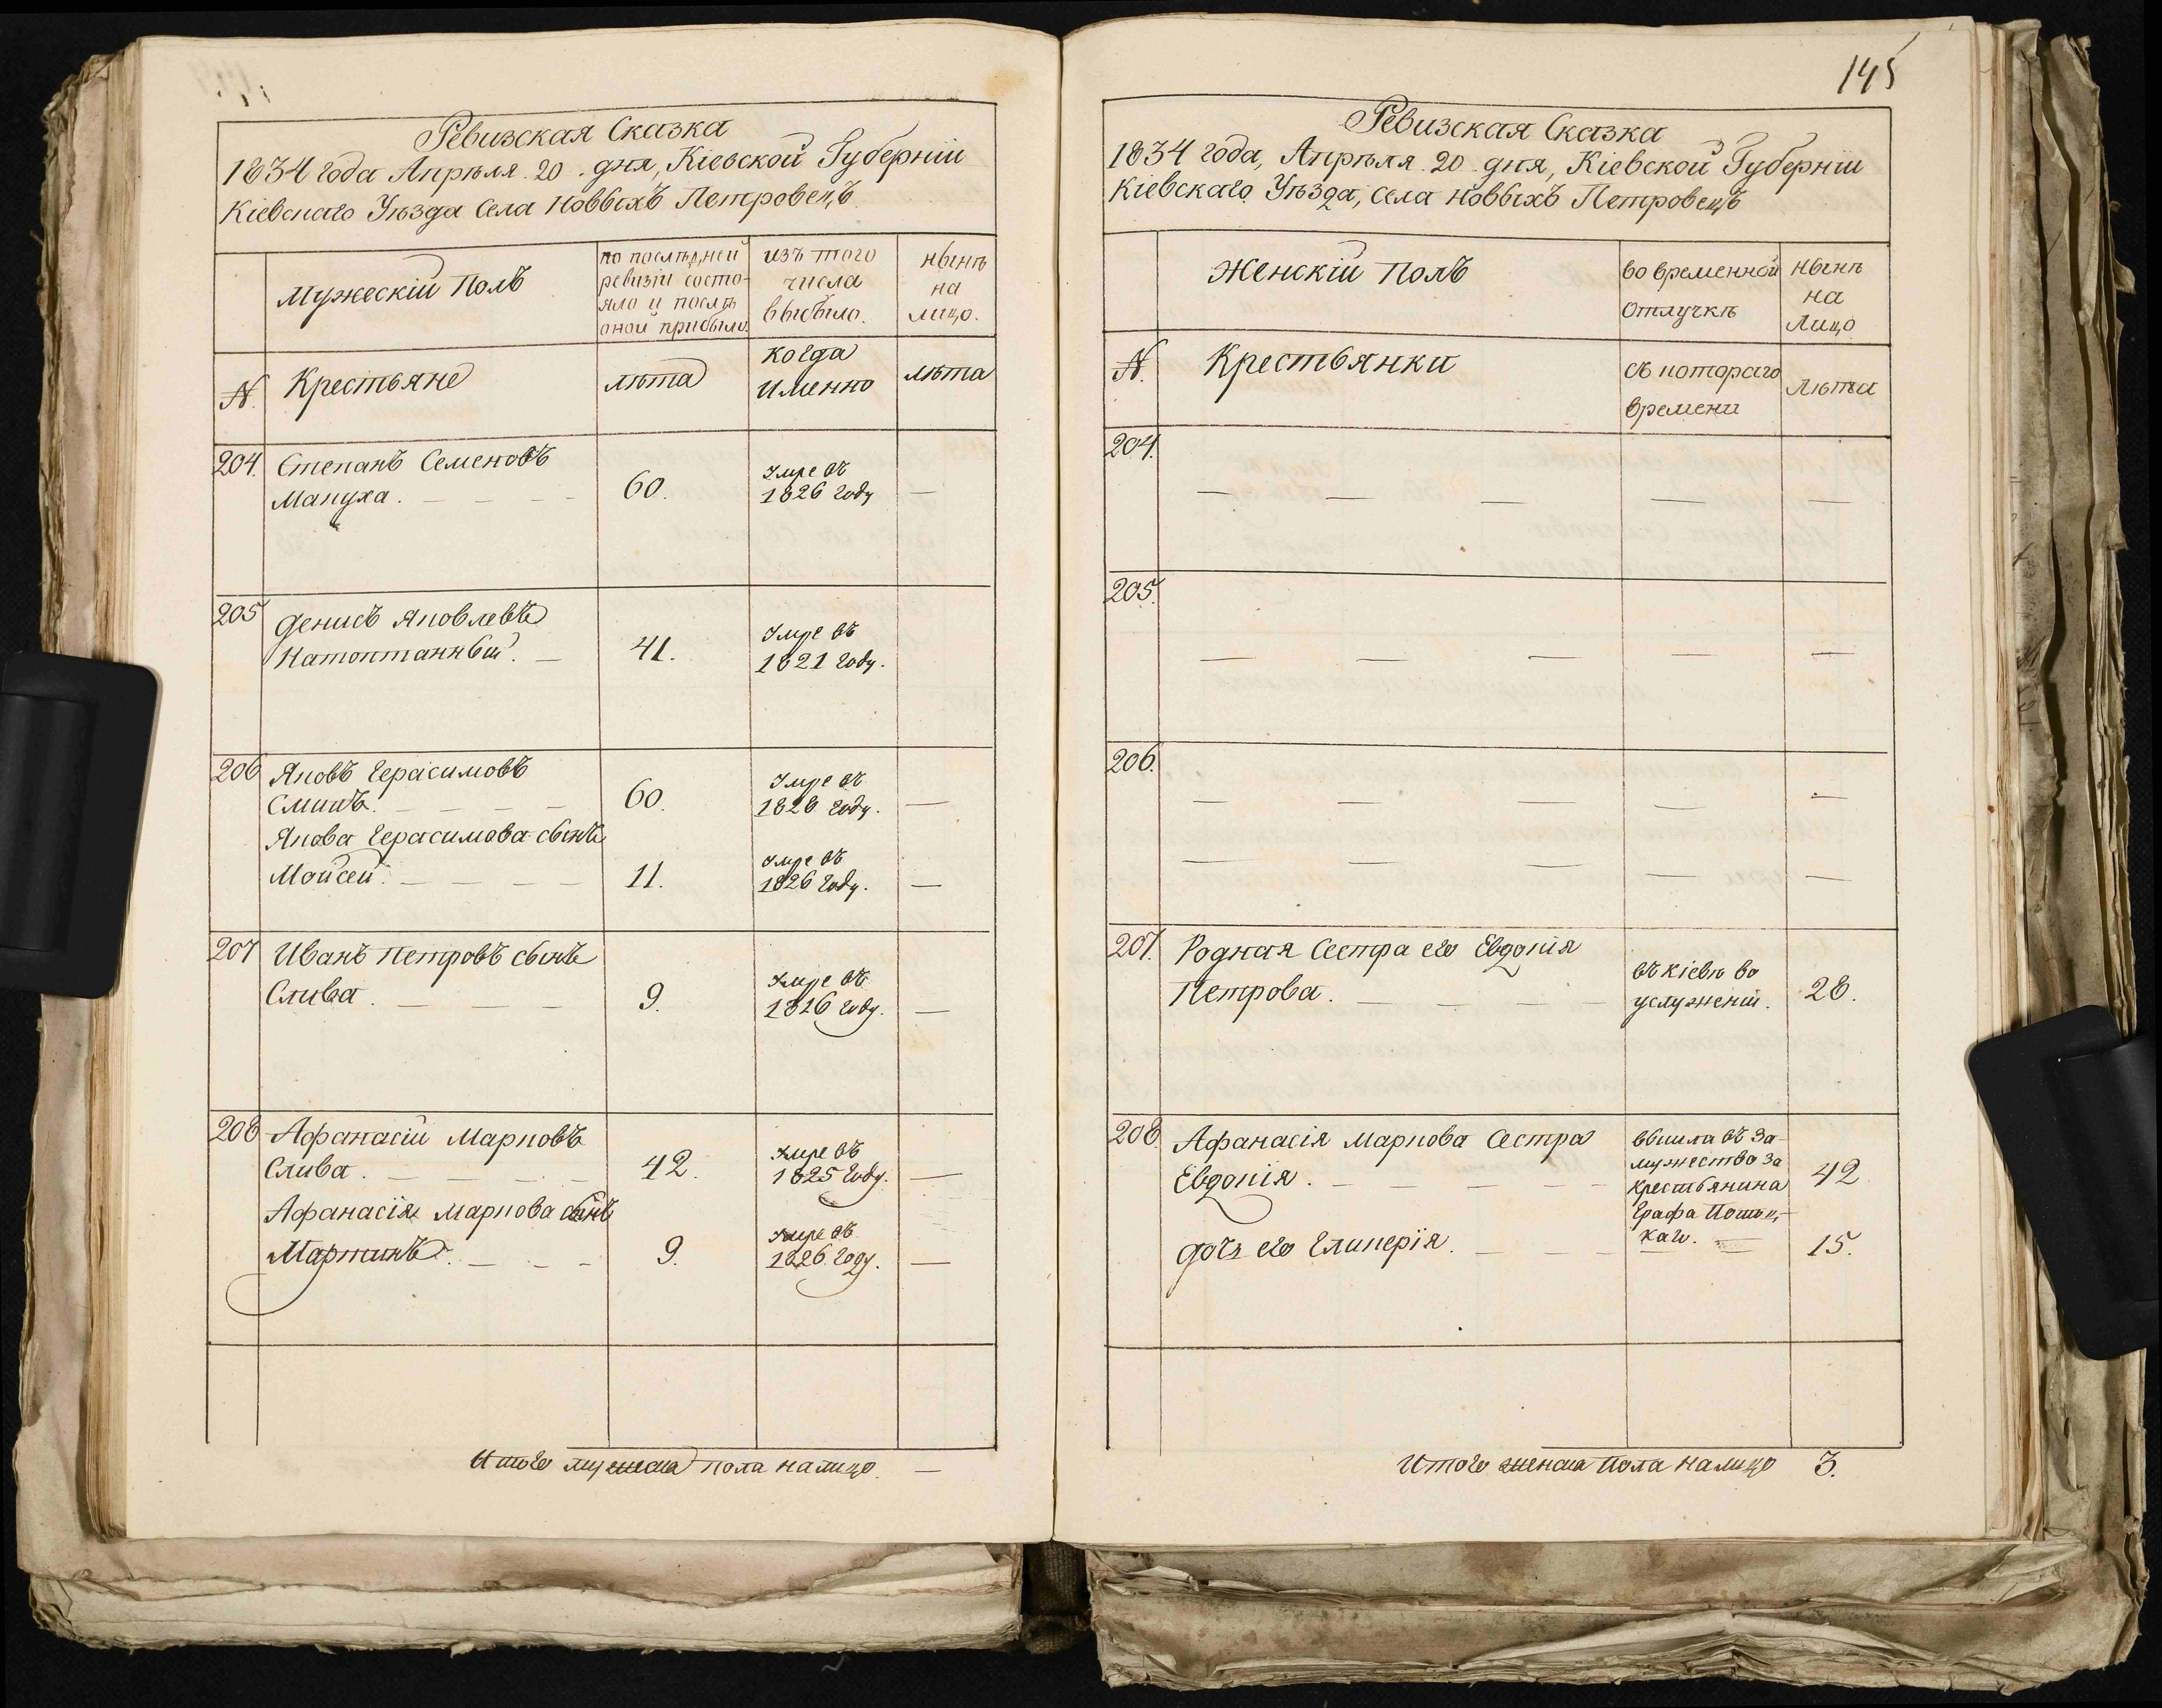 Ревизская Сказка
1834 года Апрѣля 20 дня, Кіевской Губерніи
Кіевскаго Уѣзда Села новвыхъ Петровецъ
Мужескій Полъ
по послѣдней ревизіи состояло и послѣ оной прибыло.
изъ того числа выбыло.
нынѣ на лицо.
N. Крестьяне
лѣта
когда именно
лѣта
204. Степанъ Семеновъ
Мануха. 60. Умре въ 1826 году —
205 Денисъ Яковлевъ
Натоптанный. 41. Умре въ 1821 году.
206 Яковъ Герасимовъ
60. Умре въ 1828 году. —
Якова Герасимова сынъ
Мойсей. 11. Умре въ 1826 году. —
207 Иванъ Петровъ сынъ
Слива. 9. Умре въ 1816 году. —
208 Афанасій Марковъ
Слива. 42. Умре въ 1825 году. —
Афанасія Маркова сынъ
Мартинъ. 9. Умре въ 1826 году. —
Итого мужеска пола налицо. —
145
Ревизская Сказка
1834 года, Апрѣля 20 дня, Кіевской Губерніи
Кіевскаго Уѣзда, Села новвыхъ Петровецъ
Женскій полъ
во временной отлучкѣ
нынѣ на лицо
N. Крестьянки
съ котораго времени
лѣта
204.
205.
206.
207. Родная Сестра его Евдокія
Петрова. въ Кіевѣ во услуженіи. 28.
208. Афанасія Маркова Сестра
Евдокія. вышла въ замужество за крестьянина Графа 42
дочь его Гликерія. 15.
Итого женска пола налицо 3.